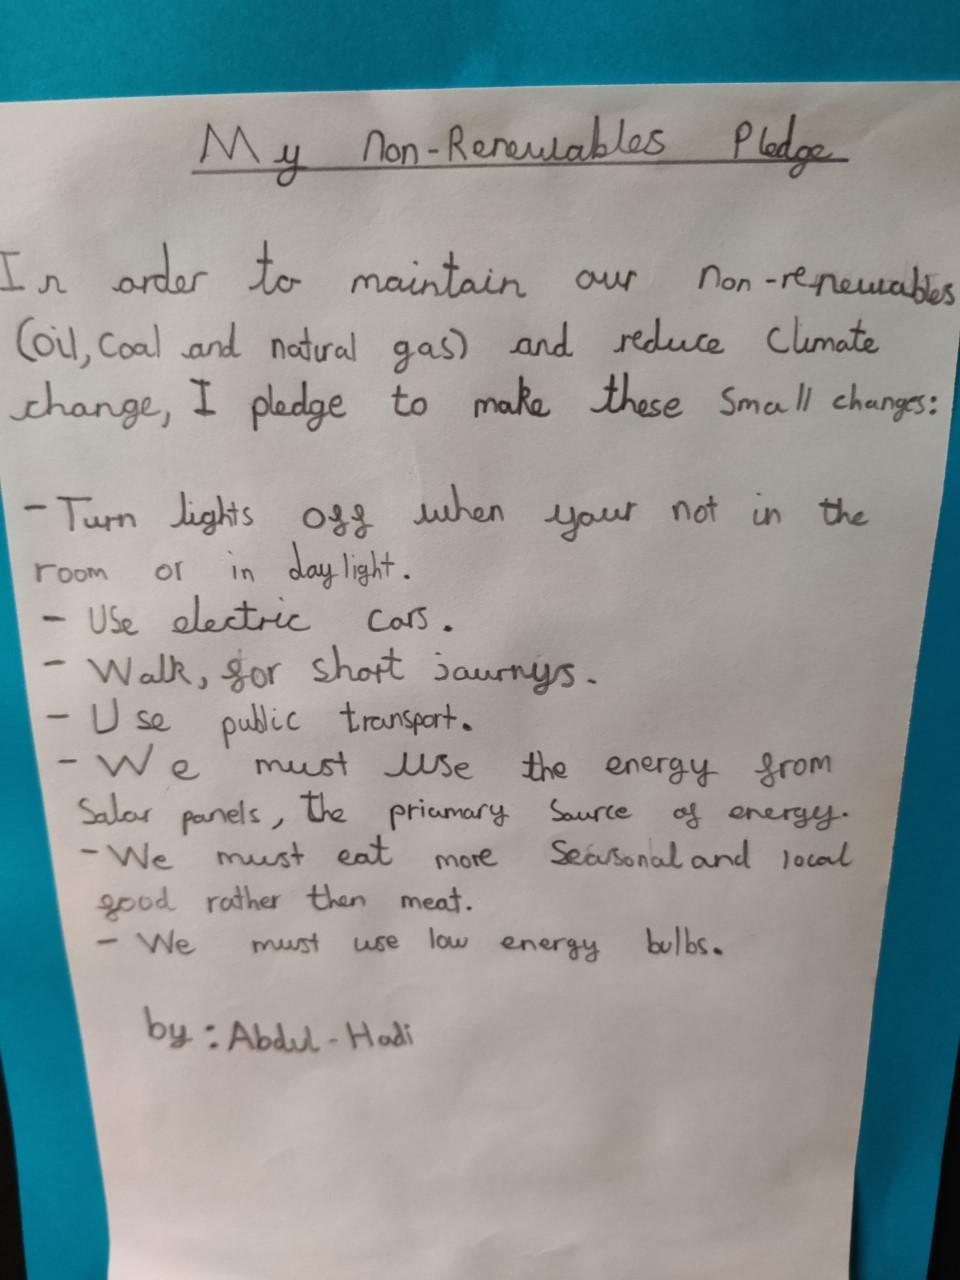 My Non-Renewables Pledge
In order to maintain our non-renewables
(oil, coal and natural gas) and reduce climate
change, I pledge to make these small changes:
- Turn lights off when your not in the
room or in daylight.
- Use electric cars.
- Walk, for short journys.
- Use public transport.
- We must use the energy from
Solar panels, the priamary source of energy.
- We must eat more seasonal and local
good rather then meat.
- We must use low energy bulbs.
by: Abdul-Hadi